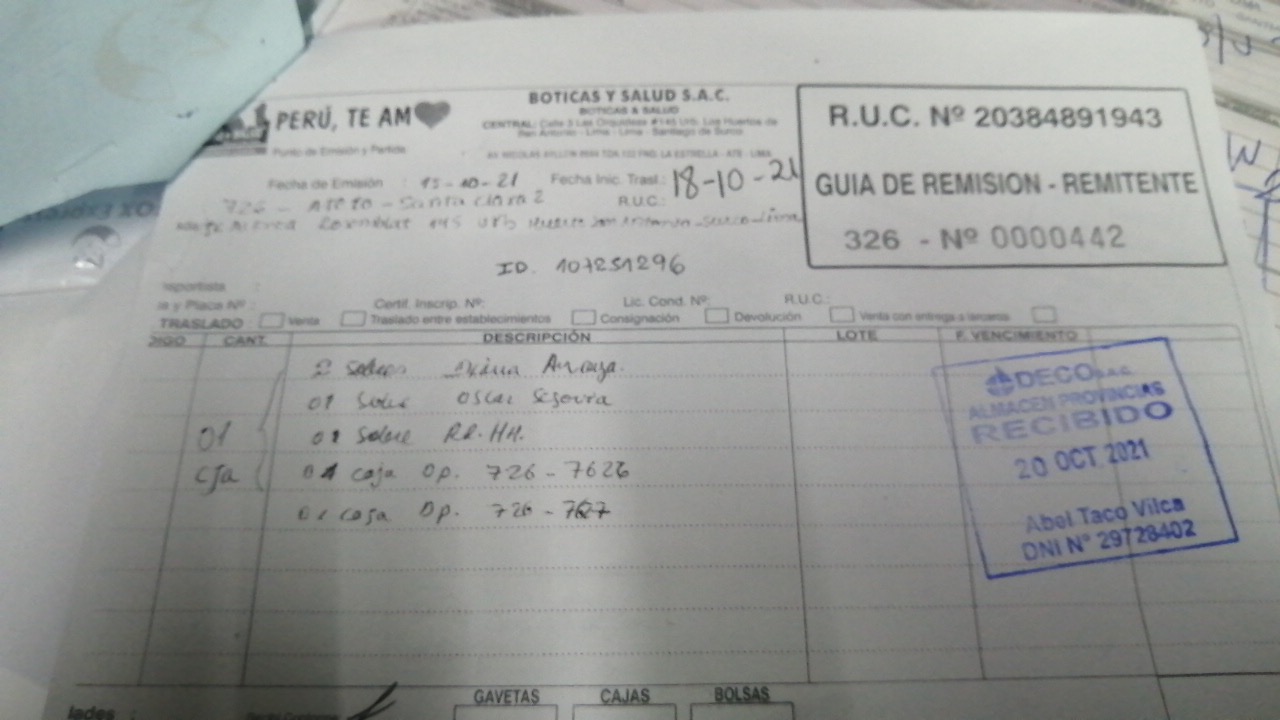 PERÚ, TE AM
BOTICAS Y SALUD S.A.C.
BOTICAS & SALUD
CENTRAL: Calle 3 Las Orquideas #145 Urb. Los Huertos de
San Antonio - Lima - Lima - Santiago de Surco
Punto de Emisión y Partida
AV. NICOLAS AYLLON LA ESTRELLA - ATE - LIMA
R.U.C. Nº 20384891943
GUIA DE REMISION - REMITENTE
326 - Nº 0000442
Fecha de Emisión : 15-10-21 Fecha Inic. Trasl.: 18-10-21
726 - Santa Clara 2 R.U.C.:
Surco - Lima
ID. 107251296
Certif. Inscrip. Nº: Lic. Cond. Nº: R.U.C.:
y Placa Nº :
TRASLADO Venta Traslado entre establecimientos Consignación Devolución Venta con entrega a terceros
CANT. DESCRIPCIÓN LOTE F. VENCIMIENTO
Diana
01 Sobre Oscar Segovia
01 01 Sobre RR.HH.
cja 01 caja Op. 726 - 7626
01 caja Op. 726 - 7627
DECO S.A.C.
ALMACEN PROVINCIAS
RECIBIDO
20 OCT 2021
Abel Taco Vilca
DNI N° 29728402
GAVETAS CAJAS BOLSAS